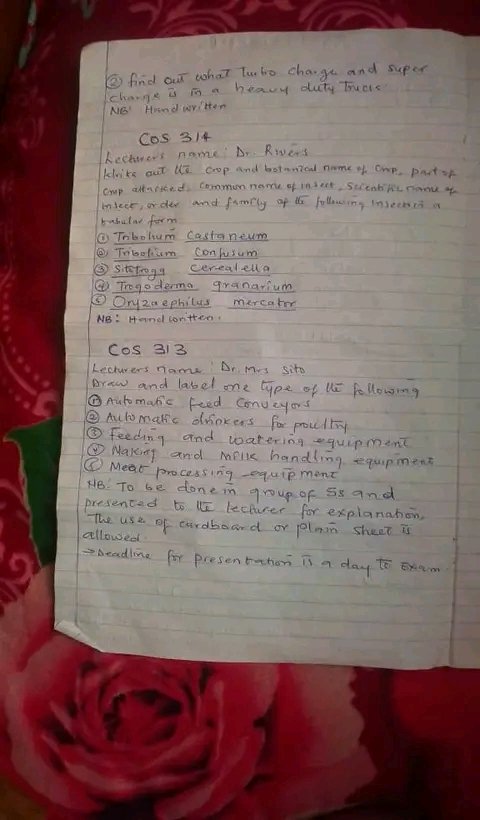 ② find out what Turbo charge and super
charge is in a heavy duty Truck.
NB: Handwritten
COS 314
Lecturers name: Dr. Rivers
Write out the crop and botanical name of crop, part of
crop attacked, common name of insect, scientific name of
insect, order and family of the following insects in a
tabular form
① Tribolium castaneum
② Tribolium confusum
③ Sitotroga cerealella
④ Trogoderma granarium
⑤ Oryzaephilus mercator
NB: Handwritten.
COS 313
Lecturers name: Dr. Mrs Sito
Draw and label one type of the following
① Automatic feed conveyors
② Automatic drinkers for poultry
③ Feeding and watering equipment
④ Making and milk handling equipment
⑤ Meat processing equipment
NB: To be done in group of 5s and
presented to the lecturer for explanation.
The use of cardboard or plain sheet is
allowed.
→ Deadline for presentation is a day to exam.